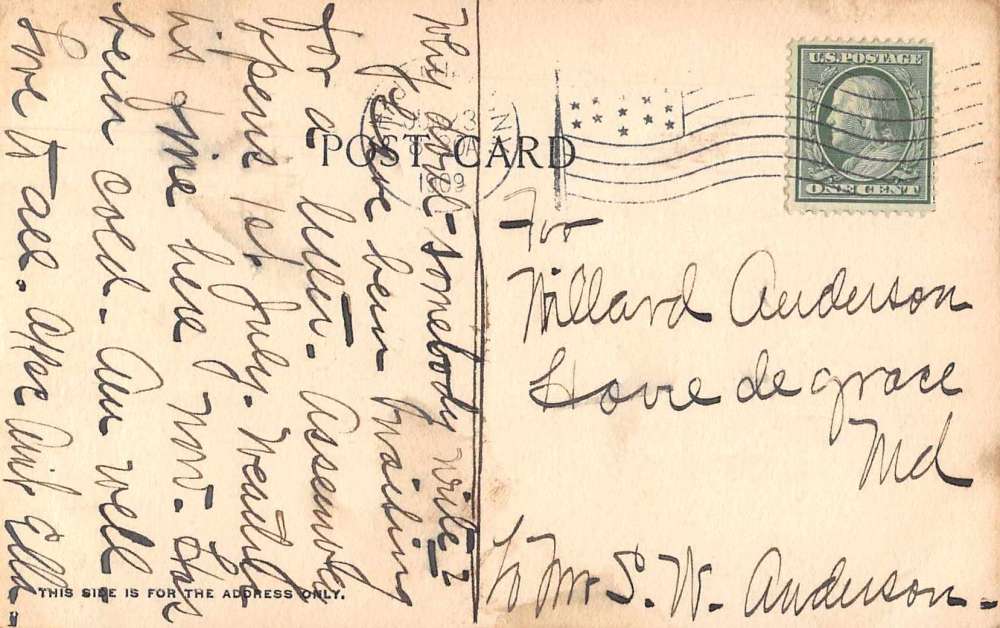 POST CARD
U.S. POSTAGE
ONE CENT
1909
Why don't somebody write?
Have been waiting
for a letter. Assembly
opens 1st July. Weather
is fine here now. Has
been cold. Am well
Love to all.
For
Willard Anderson
Havre de grace
Md
To Mr S. W. Anderson.
THIS SIDE IS FOR THE ADDRESS ONLY.